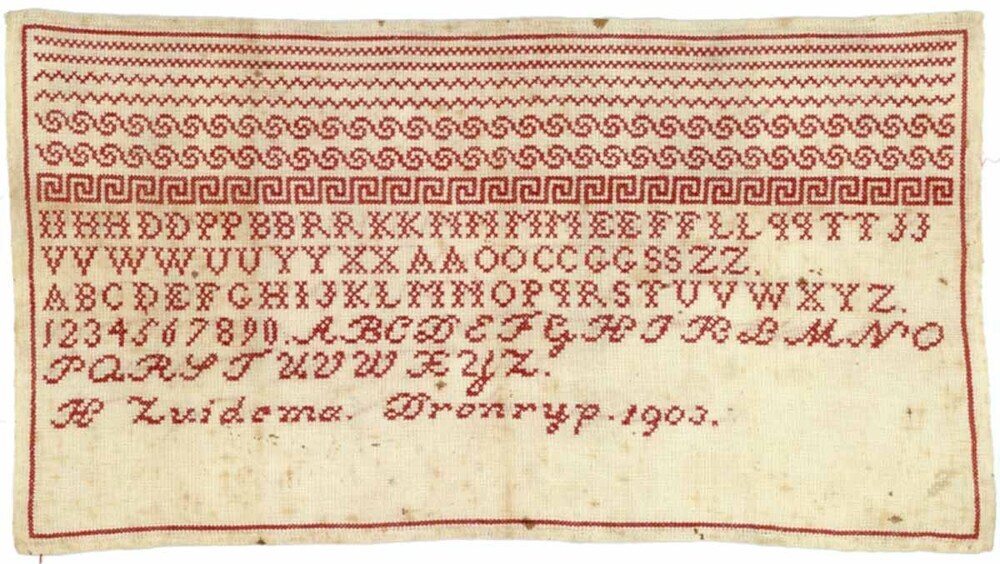 HHHDDPPBBRRKKNNMMEEFFLLqqTTJJ
VVWWUUYYXXAAOOCCGGSSZZ.
ABCDEFGHIJKLMNOPqRSTUVWXYZ.
1234567890. ABCDEFGHIKLMNO
PQRSTUVWXYZ.
H Zuidema. Dronryp. 1903.